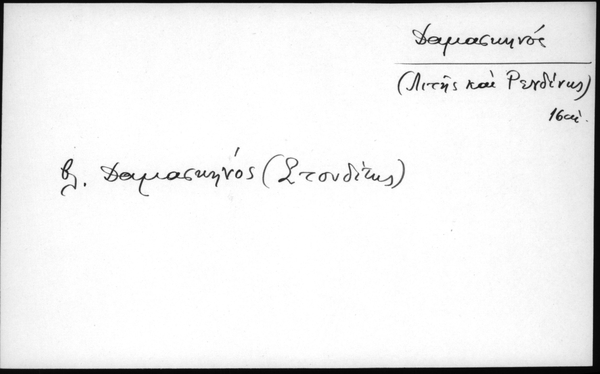 Δαμασκηνός
(Λιτῆς καὶ Ρενδίνης)
16 αἰ.
βλ. Δαμασκηνός (Στουδίτης)